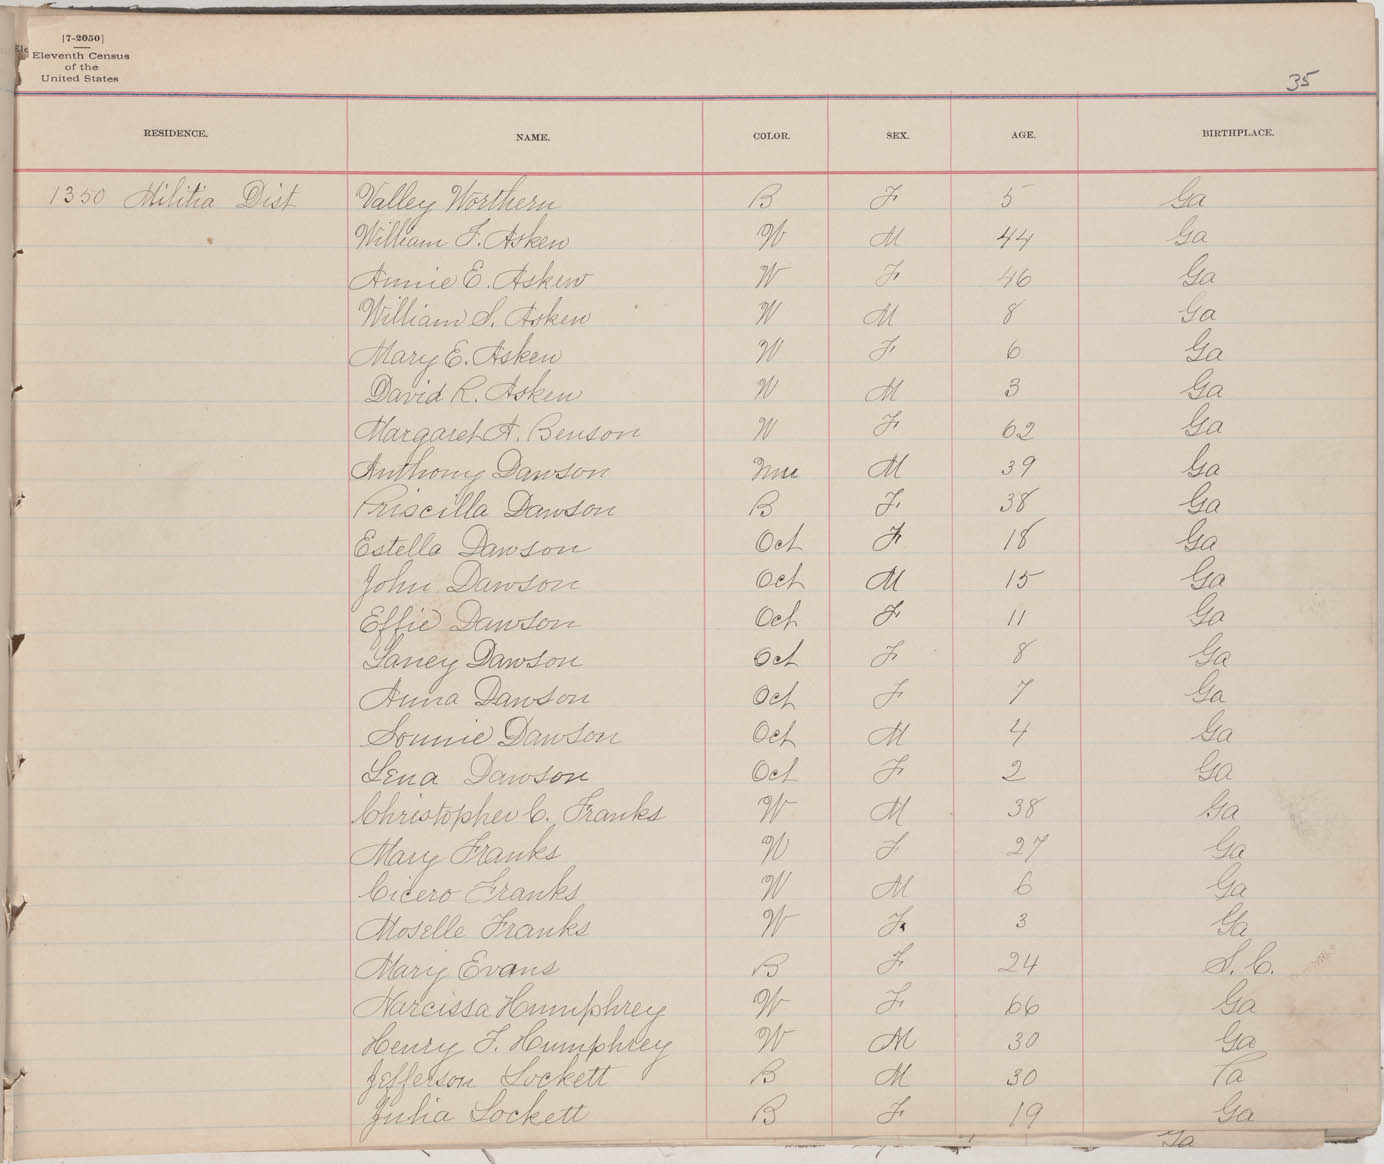 [7-2050]
Eleventh Census
of the
United States
35
RESIDENCE. NAME. COLOR. SEX. AGE. BIRTHPLACE.
1350 Militia Dist Valley Worthern B F 5 Ga
William F. Asken W M 44 Ga
Annie E. Askew W F 46 Ga
William S. Asken W M 8 Ga
Mary E. Asken W F 6 Ga
David R. Asken W M 3 Ga
Margaret A. Benson W F 62 Ga
Anthony Dawson Mu M 39 Ga
Priscilla Dawson B F 38 Ga
Estella Dawson Oct F 18 Ga
John Dawson Oct M 15 Ga
Effie Dawson Oct F 11 Ga
Laney Dawson Oct F 8 Ga
Anna Dawson Oct F 7 Ga
Lonnie Dawson Oct M 4 Ga
Lena Dawson Oct F 2 Ga
Christopher C. Franks W M 38 Ga
Mary Franks W F 27 Ga
Cicero Franks W M 6 Ga
Moselle Franks W F 3 Ga
Mary Evans B F 24 S.C.
Narcissa Humphrey W F 66 Ga
Henry F. Humphrey W M 30 Ga
Jefferson Lockett B M 30 Va
Julia Lockett B F 19 Ga
Ga